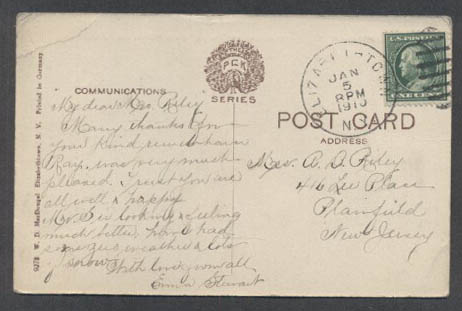 COMMUNICATIONS
THE
PCK
SERIES
POST CARD
ADDRESS
ELIZABETHTOWN
JAN
5
8 PM
1910
N.Y.
U.S. POSTAGE
ONE CENT
9278 W. D. MacDougal Elizabethtown, N. Y. Printed in Germany
My dear Mrs Riley
Many thanks for
your kind remembrance
Ray was very much
pleased. I trust you are
all well & happy
Mr. S is looking & feeling
much better, have had
weather & lots
of snow.
With love from all
Emma Stewart
Mrs. A. D. Riley
416 Lee Place
Plainfield
New Jersey